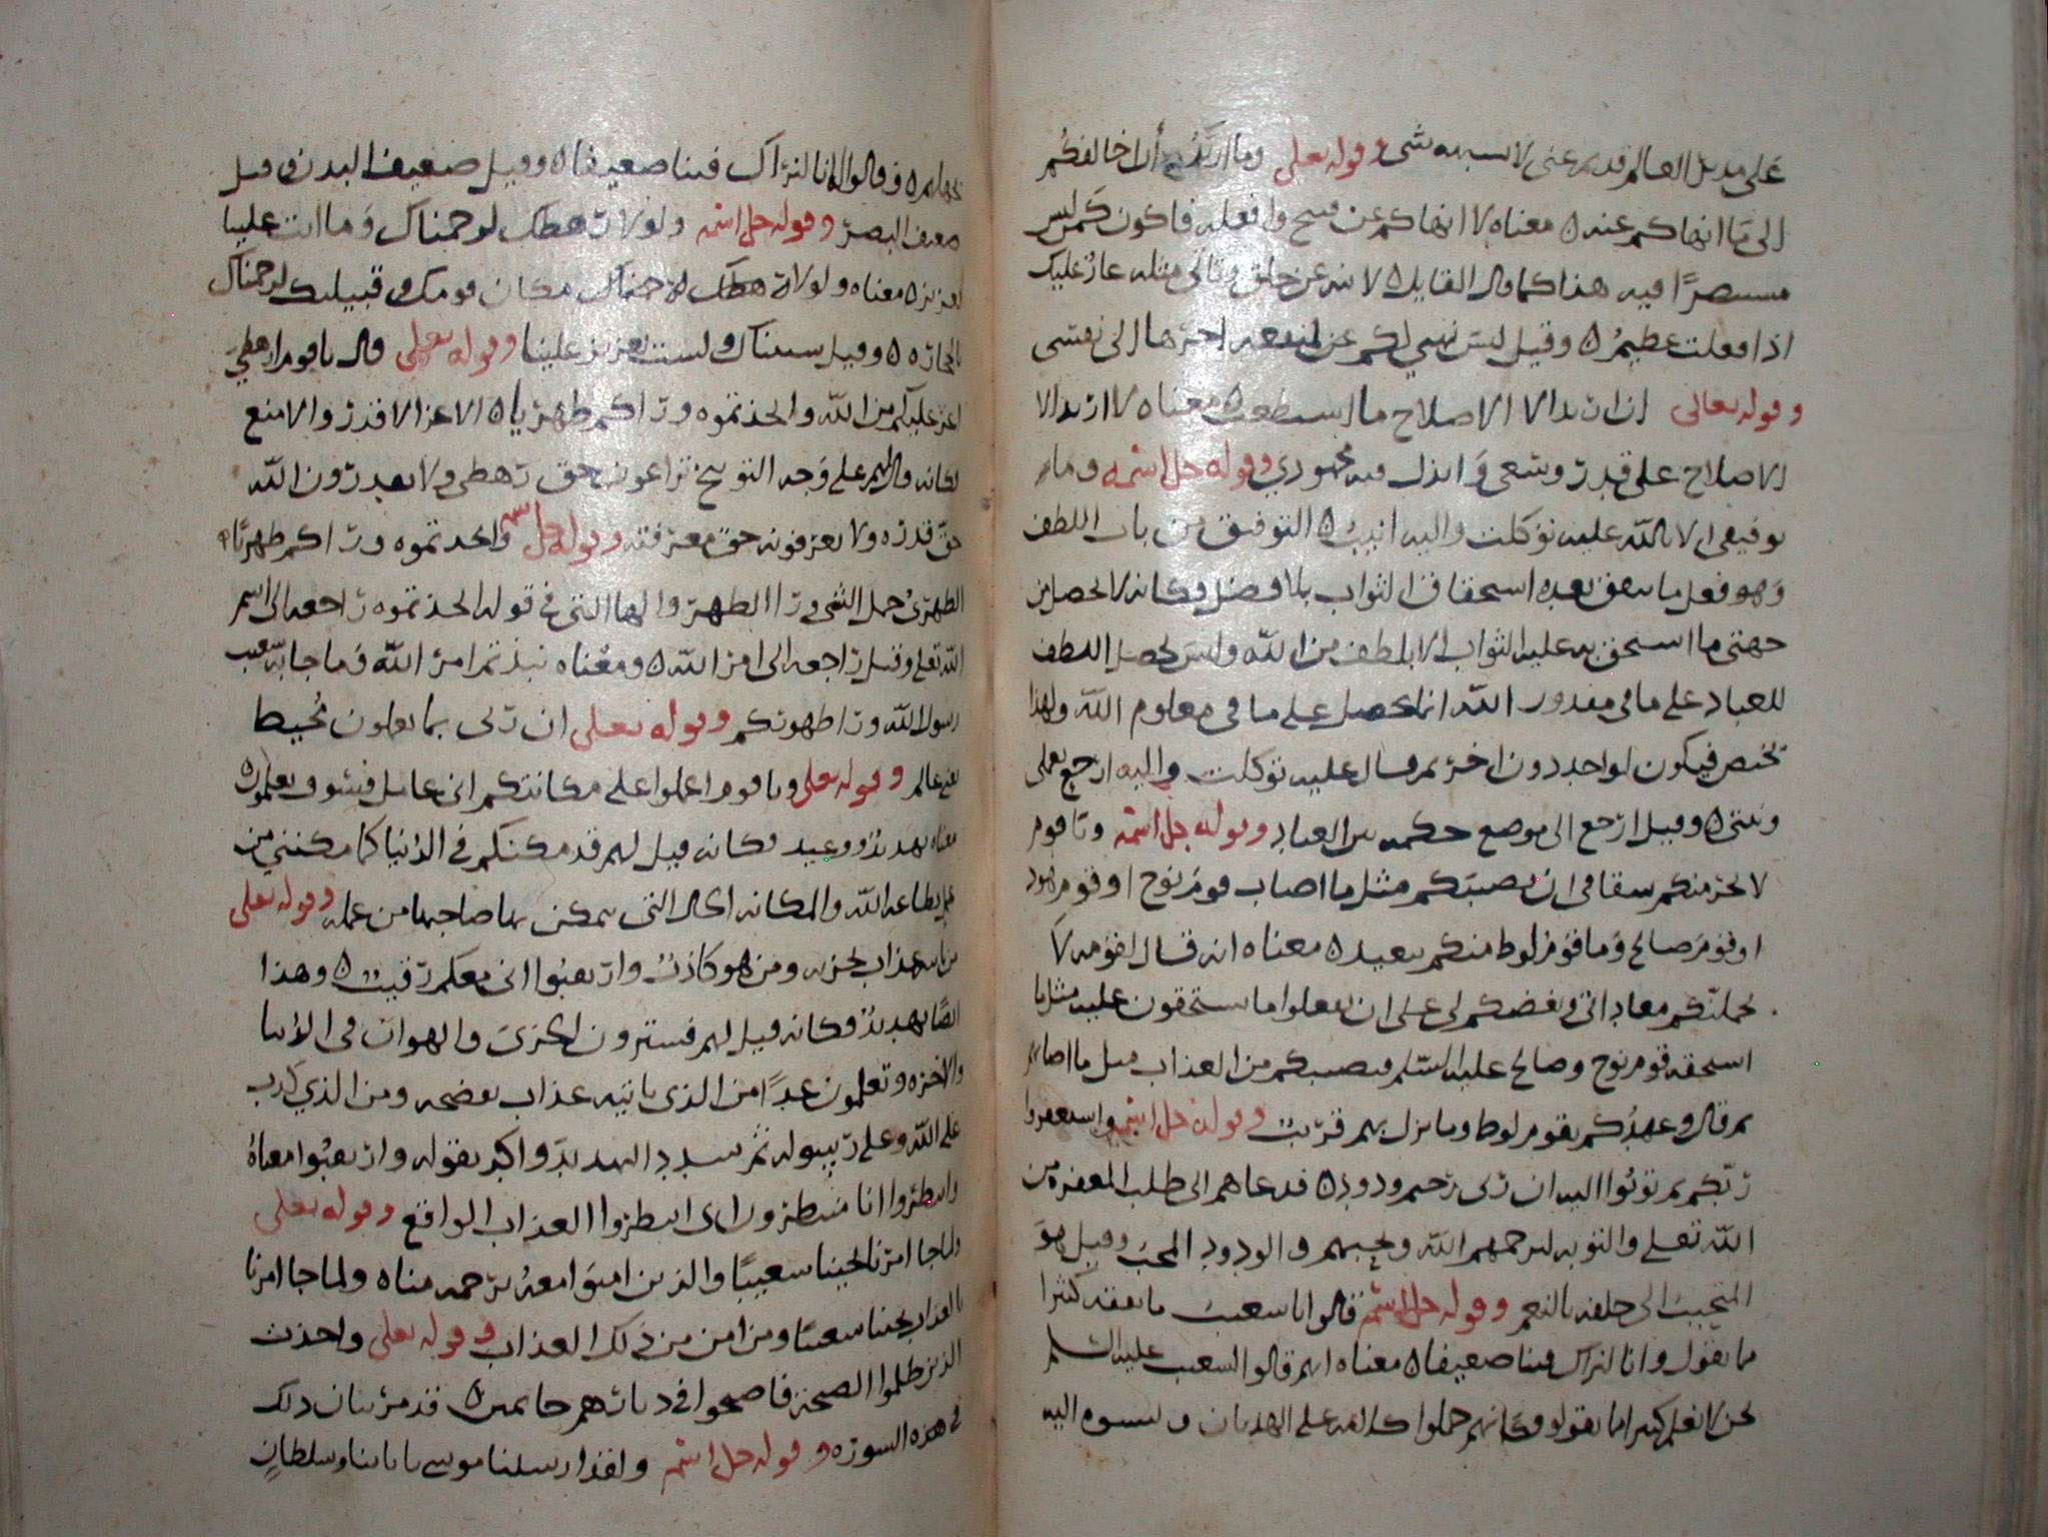 على مدبل العالم قديم غنى لا يشبهه شى وقوله تعلى وما اريد أن اخالفكم
الى ما انهاكم عنه ه معناه لا انهاكم عن قبيح وافعله فاكون كمن ليس
مستبصرًا فيه هذا كما قال القايل ه لا تنه عن خلق وتاتي مثله عار عليك
اذا فعلت عظيمُ ه وقيل ليس نهيي لكم عن لمنفعه اجرها الى نفسى
وقوله تعالى ان اريد الا الاصلاح ما استطعت ه معناه لا اريد الا
الاصلاح على قدر وسعى وابذل فيه مجهودي وقوله جل اسمه وما
توفيقى الا بالله عليه توكلت واليه انيب ه التوفيق من باب اللطف
وهو فعل ما يتفق بعده استحقاق الثواب بلا فصل وكانه لا يحصل من
جهتى ما استحق به عليه الثواب الا بلطف من الله وليس يحصل اللطف
للعباد على ما في مقدور الله انما يحصل على ما في معلوم الله ولهذا
يختص فيكون لواحد دون اخر ثم قال عليه توكلت واليه ارجع بعملى
ونيتى ه وقيل ارجع الى موضع حكمه بين العباد وقوله جل اسمه ويا قوم
لا يجرمنكم شقاقى ان يصيبكم مثل ما اصاب قوم نوح او قوم هود
او قوم صالح وما قوم لوط منكم ببعيد ه معناه انه قال لقومه لا
يحملنكم معاداتى وبغضكم لى على ان تفعلوا ما تستحقون عليه مثل ما
استحقه قوم نوح وصالح عليه السلم فيصيبكم من العذاب مثل ما اصابهم
ثم قال وعهدكم بقوم لوط وما نزل بهم قريب وقوله جل اسمه واستغفروا
ربكم ثم توبوا اليه ان ربى رحيم ودود ه فدعاهم الى طلب المغفره من
الله تعلى والتوبه ليرحمهم الله ويحبهم والودود المحب وقيل هو
المتحبب الى خلقه بالنعم وقوله جل اسمه قالوا يا شعيب ما نفقه كثيرا
مما تقول وانا لنراك فينا ضعيفا ه معناه انهم قالوا لشعيب عليه السلم
نحن لا نعلم كثيرا مما تقول وكانهم حملوا كلامه على الهذيان ونسبوه اليه
بجهلهم ه وقالوا انا لنراك فينا ضعيفا ه وقيل ضعيف البدن وقيل
ضعيف البصر وقوله جل اسمه ولولا رهطك لرجمناك وما انت علينا
بعزيز ه معناه ولولا رهطك لرجمناك مكان قومك وقبيلتك لرجمناك
بالحجاره ه وقيل سببناك ولست بعزيز علينا وقوله تعلى قال يا قوم ارهطي
اعز عليكم من الله واتخذتموه وراكم ظهريا ه الاعز الاقدر والامنع
فكانه قال لهم على وجه التوبيخ تراعون حق رهطى ولا تقدرون الله
حق قدره ولا تعرفونه حق معرفته وقوله جل اسمه واتخذتموه وراكم ظهريًا ه
الظهرىُ جعل الشي ورا الظهر والها التى في قوله اتخذتموه راجعه الى اسم
الله تعلى وقيل راجعه الى امر الله ه ومعناه نبذتم امر الله وما جا به شعيب
رسول الله ورا ظهوركم وقوله تعلى ان ربى بما تعملون مُحيط
يعنى عالم وقوله تعلى ويا قوم اعملوا على مكانتكم انى عامل فسوف تعلمون ه
معناه تهديد ووعيد فكانه قيل لهم قد مكنكم في الدنيا كما مكننى من
عمل بطاعه الله والمكانه الحال التى يتمكن بها صاحبها من عمله وقوله تعلى
من ياتيه عذاب يخزيه ومن هو كاذبُ وارتقبوا انى معكم رقيب ه وهذا
ايضًا تهديدُ وكانه قيل لهم فسترون الخزى والهوان في الدنيا
والاخره وتعلمون غدًا من الذى ياتيه عذاب يفضحه ومن الذي كذب
على الله وعلى رسوله ثم شدد التهديد واكد بقوله وارتقبوا معناهُ
وانتظروا انا منتظرون اى انتظروا العذاب الواقع وقوله تعلى
ولما جا امرنا نجينا شعيبًا والذين امنوا معه برحمه منا ه ولما جا امرنا
بالعذاب نجينا شعيبا ومن امن من ذلك العذاب وقوله تعلى واخذت
الذين ظلموا الصيحة فاصبحوا في ديارهم جاثمين ه قد مر بيان ذلك
في هذه السوره وقوله جل اسمه ولقد ارسلنا موسى باياتنا وسلطانٍ